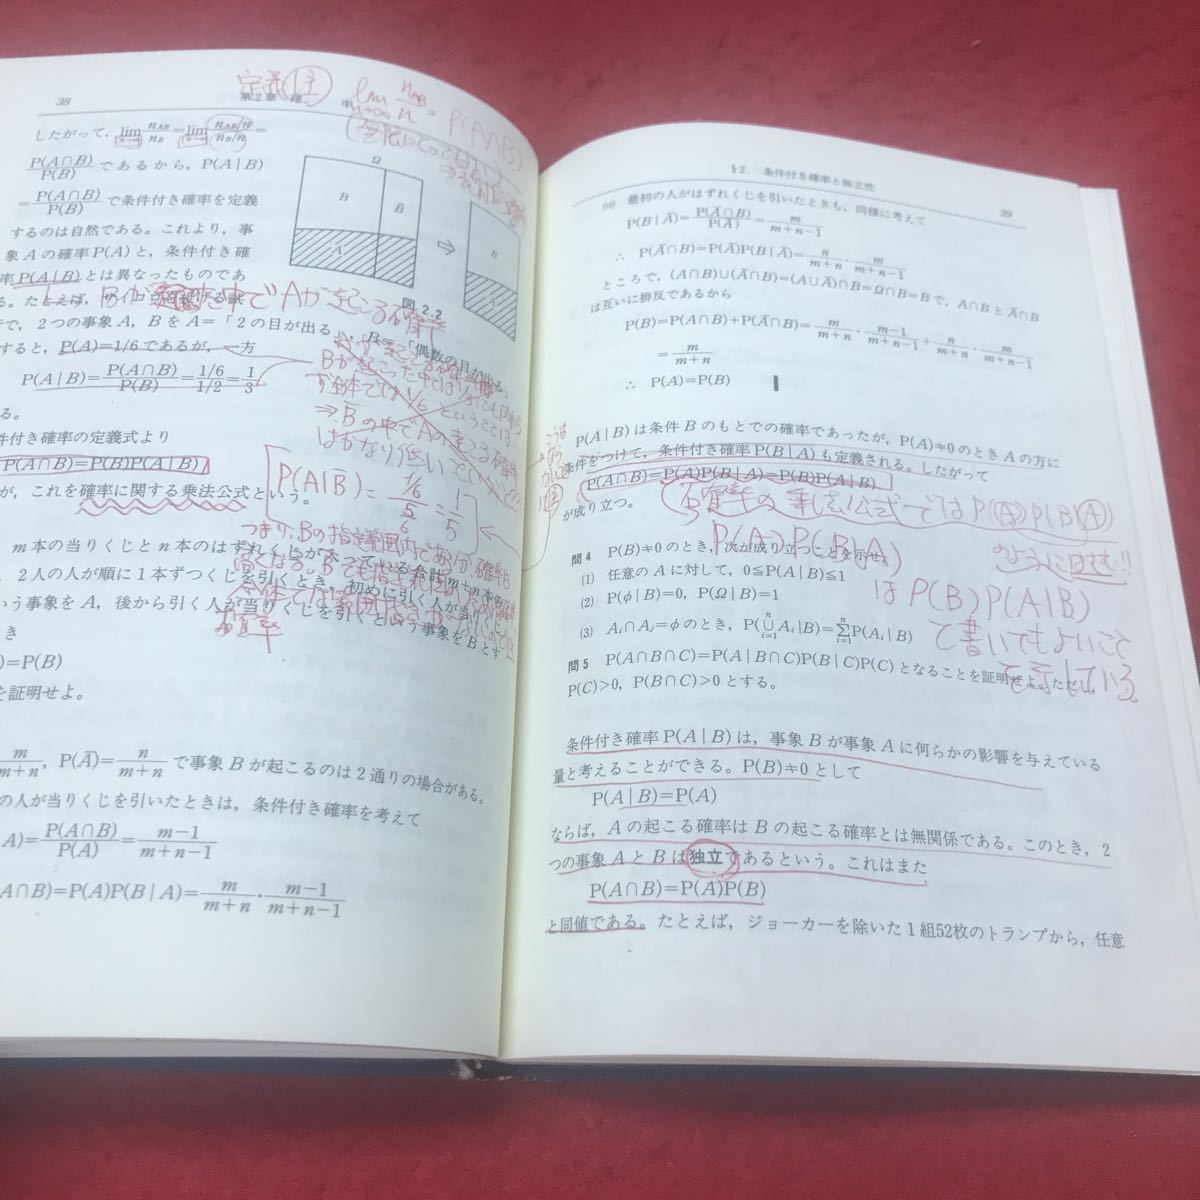 38
第2章 確 率
定義
lim n_AB/n = P(A∩B)
n→∞
したがって, lim n_AB/n_B = lim (n_AB/n)/(n_B/n) =
n→∞ n→∞
P(A∩B)/P(B) であるから, P(A|B)
= P(A∩B)/P(B) で条件付き確率を定義
するのは自然である。これより, 事
象Aの確率P(A)と, 条件付き確
率P(A|B)とは異なったものであ
る。たとえば,
Ω
B
B̄
A
⇒
B
図 2.2
Bが 中でAが起こる確率
で, 2つの事象A, BをA=「2の目が出る」, B=「偶数の目が出る」
すると, P(A)=1/6であるが, 一方
P(A|B)=P(A∩B)/P(B)=(1/6)/(1/2)=1/3
る。
件付き確率の定義式より
P(A∩B)=P(B)P(A|B)
が, これを確率に関する乗法公式という。
⇒B̄の中でAの起こる確率
はかなり低い
P(A|B̄)=(1/6)/(5/6)=1/5
つまり, Bの指定範囲内で
m本の当りくじとn本のはずれくじが入っている合計m+n本の
, 2人の人が順に1本ずつくじを引くとき, 初めに引く人が当りくじ
いう事象をA, 後から引く人が当りくじを引くという事象をBとす
確率
き
)=P(B)
を証明せよ。
m/(m+n), P(Ā)=n/(m+n) で事象Bが起こるのは2通りの場合がある。
の人が当りくじを引いたときは, 条件付き確率を考えて
A)=P(A∩B)/P(A)=(m-1)/(m+n-1)
A∩B)=P(A)P(B|A)=m/(m+n)・(m-1)/(m+n-1)
§2. 条件付き確率と独立性
39
(ロ) 最初の人がはずれくじを引いたときも, 同様に考えて
P(B|Ā)=P(Ā∩B)/P(Ā)=m/(m+n-1)
∴ P(Ā∩B)=P(Ā)P(B|Ā)=n/(m+n)・m/(m+n-1)
ところで, (A∩B)∪(Ā∩B)=(A∪Ā)∩B=Ω∩B=Bで, A∩BとĀ∩B
は互いに排反であるから
P(B)=P(A∩B)+P(Ā∩B)=m/(m+n)・(m-1)/(m+n-1)+n/(m+n)・m/(m+n-1)
=m/(m+n)
∴ P(A)=P(B)
P(A|B)は条件Bのもとでの確率であったが, P(A)≠0のときAの方に
条件をつけて, 条件付き確率P(B|A)も定義される。したがって
P(A∩B)=P(A)P(B|A)=P(B)P(A|B)
が成り立つ。
確率の乗法公式ではP(A)P(B|A)
のようにはさむ!!
P(A)P(B|A)
はP(B)P(A|B)
で書いてもよいこと
を示している
問4 P(B)≠0のとき, 次が成り立つことを示せ。
(1) 任意のAに対して, 0≦P(A|B)≦1
(2) P(φ|B)=0, P(Ω|B)=1
(3) Ai∩Aj=φのとき, P(∪Ai|B)=ΣP(Ai|B)
問5 P(A∩B∩C)=P(A|B∩C)P(B|C)P(C)となることを証明せよ。ただし,
P(C)>0, P(B∩C)>0とする。
条件付き確率P(A|B)は, 事象Bが事象Aに何らかの影響を与えている
量と考えることができる。P(B)≠0として
P(A|B)=P(A)
ならば, Aの起こる確率はBの起こる確率とは無関係である。このとき, 2
つの事象AとBは独立であるという。これはまた
P(A∩B)=P(A)P(B)
と同値である。たとえば, ジョーカーを除いた1組52枚のトランプから, 任意